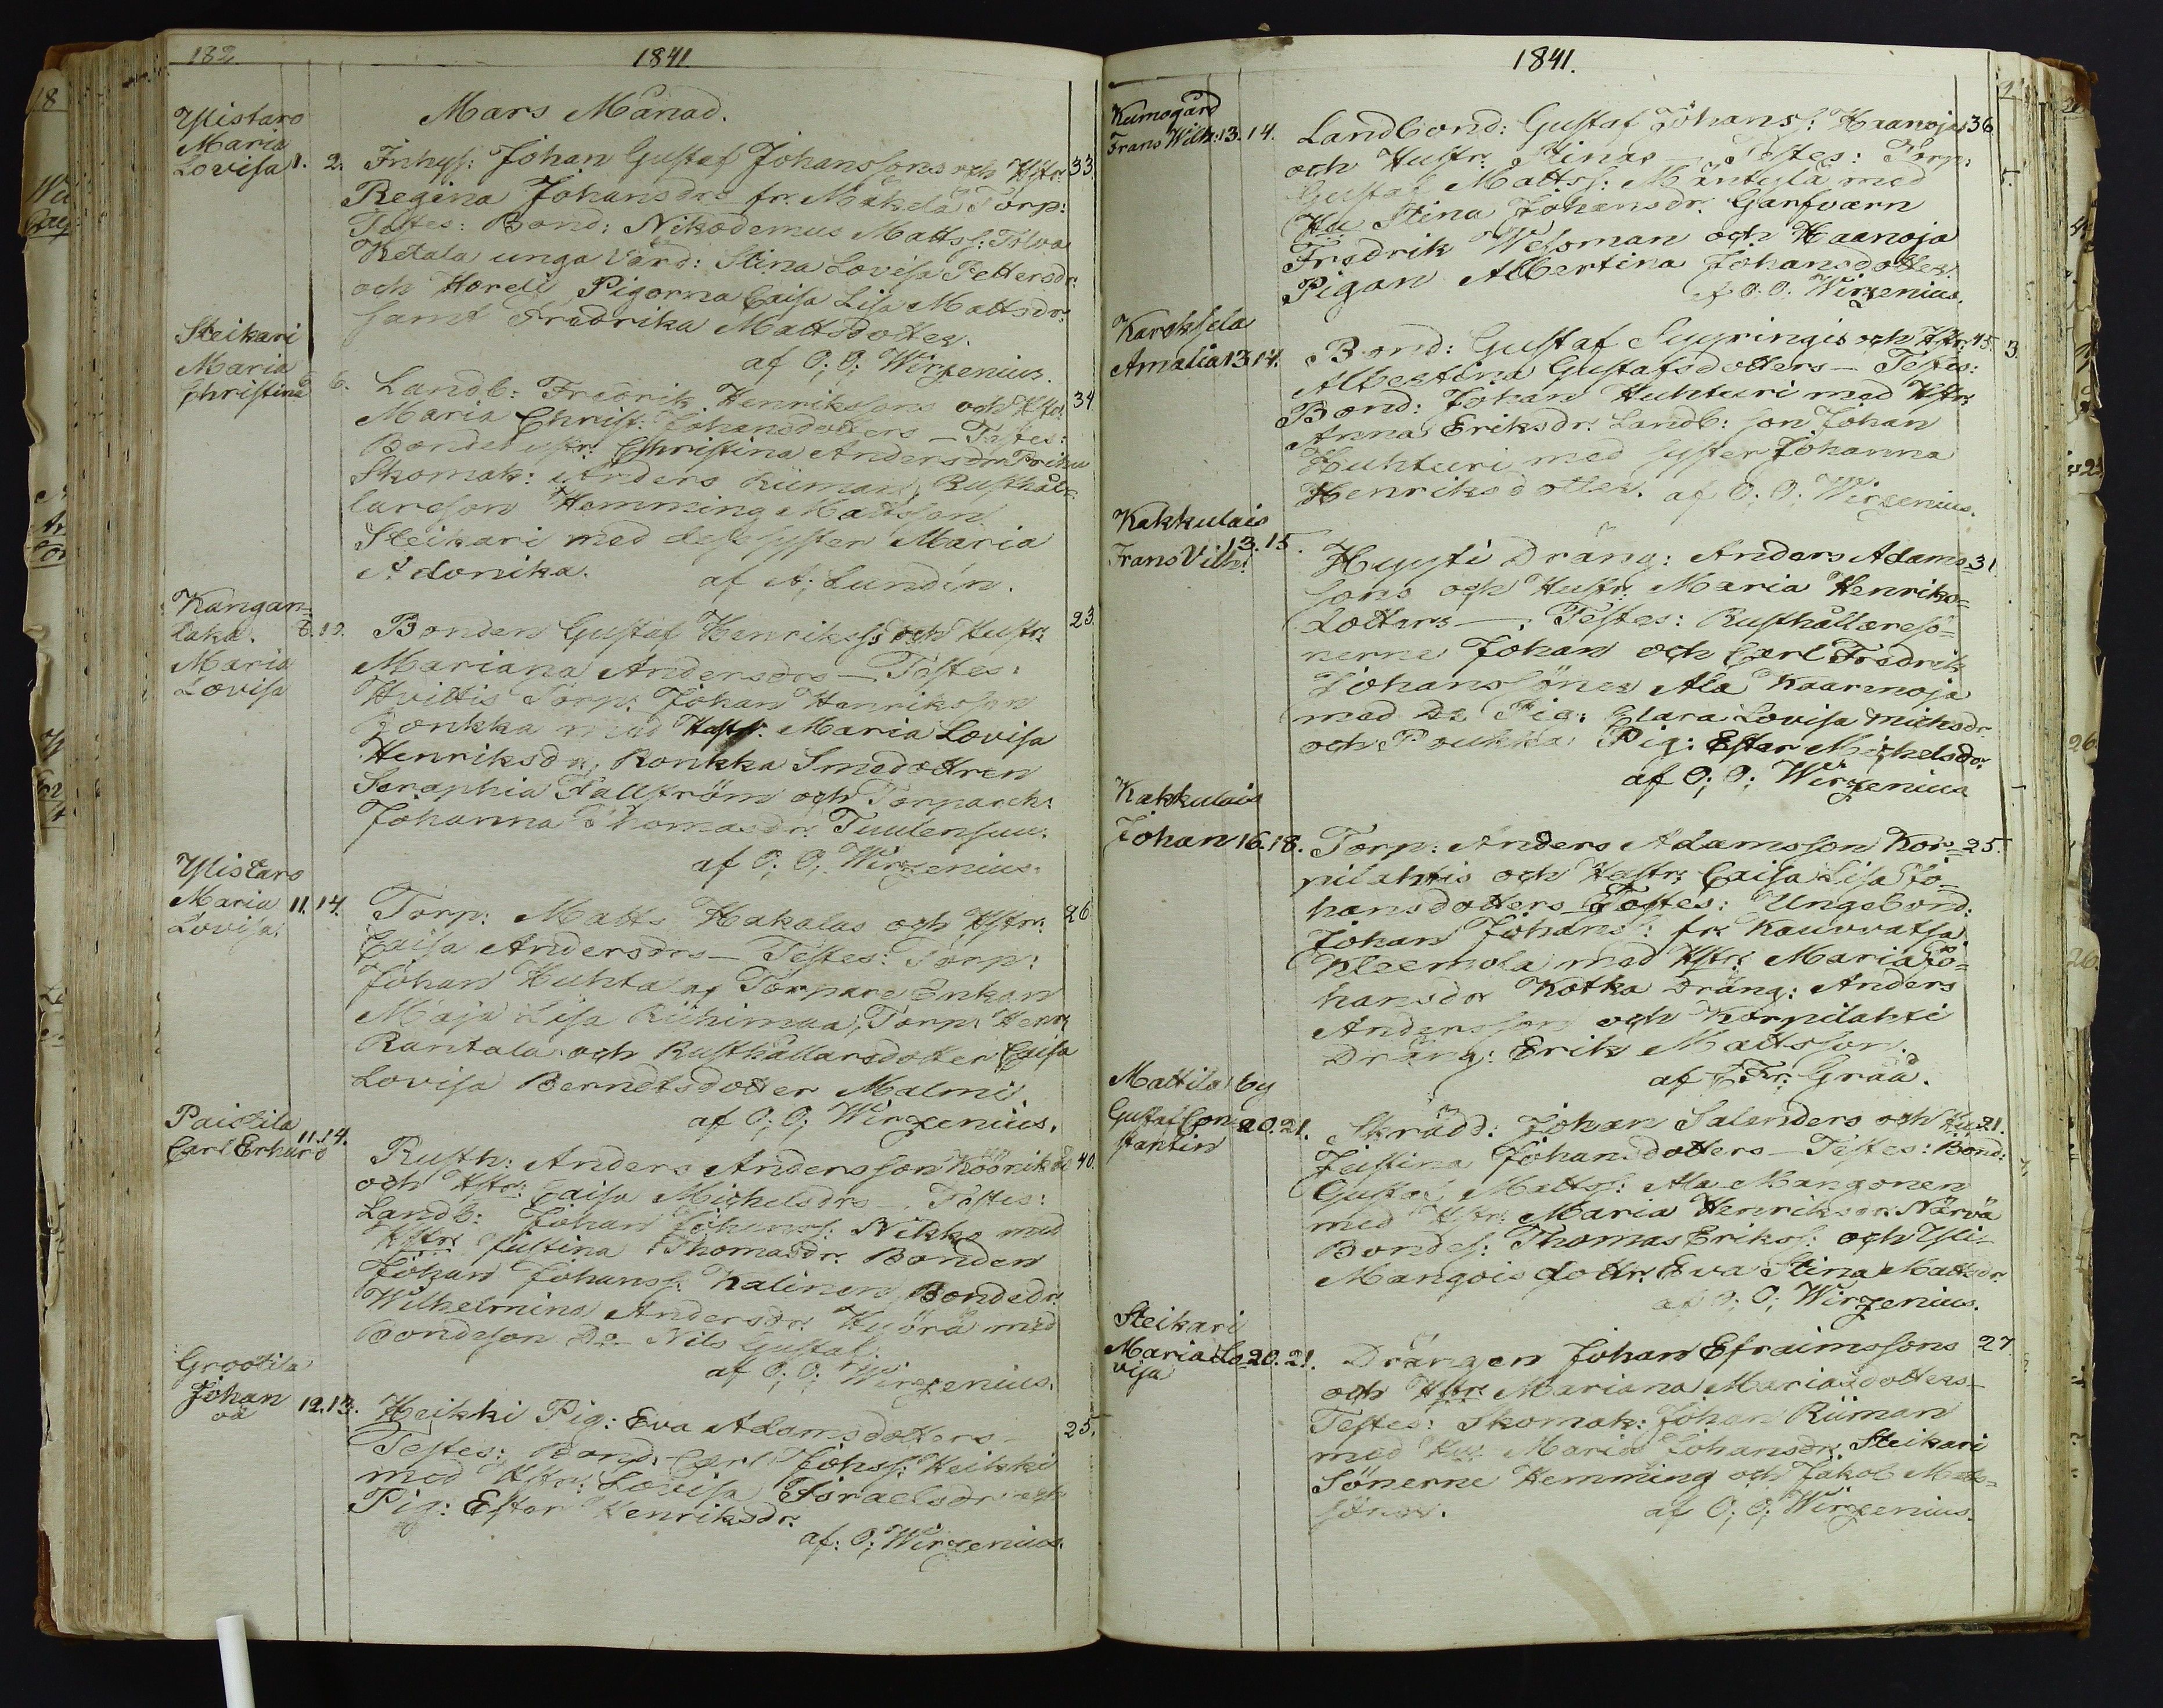 182
1841
Mars Månad.
Ylistaro
Maria
Lovisa 1. 2. Inhys: Johan Gustaf Johanssons och Hstr: 33.
Regina Johansdrs fr. Mäkelä Torp:
Testes: Bond: Nikodemus Mattss: Tolva
Ketala unga Värd: Stina Lovisa Pettersdr:
och Horeli Pigorna Caisa Lisa Mattsdr:
samt Fredrika Mattsdotter.
af O; O; Wirzenius.
Steikari
Maria
Christina 6. Landb: Fredrik Henrikssons och Hstr: 34
Maria Christ: Johansdotters — Testes:
Christina Andersdr
Skomak: Anders Riiman, Rusthål-
lareson Hemming Mattsson
Steikari med dess syster Maria
af A; Lundén.
Kangan-
taka. 8. 10. Bonden Gustaf Henrikss: och Hustr: 23.
Maria
Lovisa
Mariana Andersdrs — Testes:
Hvittis Torp: Johan Henriksson
Ronkka med Hustr: Maria Lovisa
Henriksdr, Ronkka Smedottren
Seraphia Fallström och Torparedr:
Johanna Thomasdr: Tuulensuu.
af O; O; Wirzenius.
Ylistaro
Maria 11. 14.
Lovisa.
Torp: Matts Hakalas och Hstr: 26
Caisa Andersdrs — Testes: Torp:
Johan Huhtala, Torpare Enkan
Maja Lisa Riihimaa, Torp: Henr:
Rantala och Rusthållarsdotter Caisa
Lovisa Berndtsdotter Malmi.
af O; O; Wirzenius.
Paistila
Carl Erhard 11. 14.
Rusth: Anders Andersson Köörikäs 40.
och Hstr: Caisa Michelsdrs — Testes:
Landb: Johan Johanss: Nikko med
Hstr: Justina Thomasdr: Bonden
Johan Johanss: Kalinen, Bondedr:
Wilhelmina Andersdr: med
Bondeson Do Nils Gustaf.
af O; O; Wirzenius.
Grootila
Johan 12. 13.
oä
Heikki Pig: Eva Adamsdotters — 25.
Testes: Bond: Carl Johss: Heikki
med Hstr: Lovisa Israelsdr och
Pig: Ester Henriksdr:
af: O; Wirzenius.
1841.
Kumogård
Frans Wilh: 13. 14. Landbond: Gustaf Johanss: Haanojas 36.
och Hustr: Stinas — Testes: Torp:
Gustaf Mattss: Mäntylä med
Hu Stina Johansdr: Garfvarn
Fredrik Wesman och Haanoja
Pigan Albertina Johansdotter.
af O. O. Wirzenius.
Karoksela
Amalia 13 14. Bond: Gustaf Syyringis och Hstr: 45.
Albertina Gustafsdotters — Testes:
Bond: Johan Huhturi med Hstr:
Anna Eriksdr. Landb: son Johan
Huhturi med syster Johanna
Henriksdotter. af O; O; Wirzenius.
Kakkulais
Frans Vilh: 13. 15. Hyysti Dräng: Anders Adams- 31
sons och Hustr. Maria Henriks-
dotters —; Testes: Rusthållaresö-
nerne Johan och Carl Fredrik
Johanssöner Ala Kaarnoja
med Do Pig: Clara Lovisa Michsdr
och Poukka Pig: Ester Michelsdr.
af O; O; Wirzenius
Kakkulais
Johan 16. 18. Torp: Anders Adamsson Kor- 25.
pilahtis och Hustr: Caisa Lisa Jo-
hansdotters — Testes: Ungebond:
Johan Johans: fr. Kauvvatsa
Kleemola med Hstr: Maria Jo-
hansdr Kotka Dräng: Anders
Andersson och Korpilahti
Dräng: Erik Mattsson.
af Fr. Graa.
Mattila by
Gustaf Con- 20. 21.
stantin
Skrädd: Johan Salenders och Hu 21.
Justina Johansdotters — Testes: Bond:
Gustaf Mattss: Ala Mangonen
med Hstr: Maria Henriksdr. Närvä
Bondes: Thomas Erikss: och Yli-
Mangois dottr. Eva Stina Mattsdr
af O; O; Wirzenius.
Steikari
Maria Lo- 20. 21.
visa
Drängen Johan Efraimssons 27
och Hstr: Mariana Mariasdotters —
Testes: Skomak: Johan Riiman
med Hu: Maria Johansdr. Steikari
Sönerne Hemming och Jakob Matts-
söner. af O; O; Wirzenius.